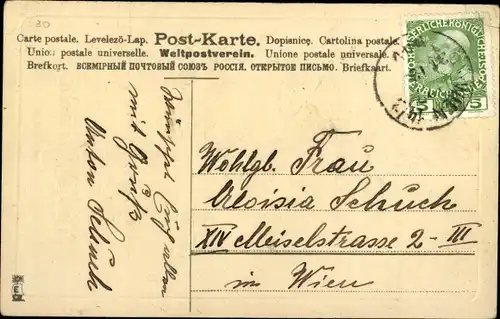 30
Carte postale. Levelező-Lap. Post-Karte. Dopisnice. Cartolina postale
Union postale universelle. Weltpostverein. Unione postale universale.
Brefkort. ВСЕМІРНЫЙ ПОЧТОВЫЙ СОЮЗЪ РОССІЯ. ОТКРЫТОЕ ПИСЬМО. Briefkaart.
5 5
mit
Anton Schuch
Wohlgb. Frau
Aloisia Schuch
XIV Meiselstrasse 2-III
in Wien